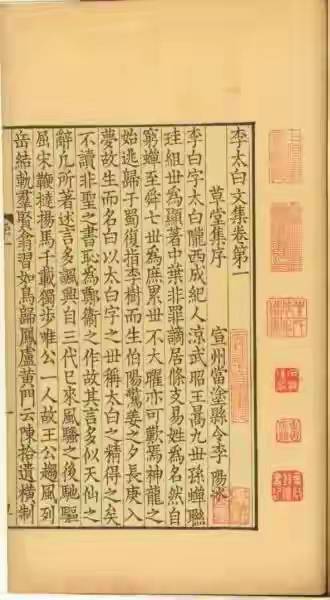 李太白文集卷第一
草堂集序
宣州當塗縣令李陽冰
李白字太白隴西成紀人涼武昭王暠九世孫蟬聯
珪組世爲顯著中葉非罪謫居條支易姓爲名然自
窮蟬至舜七世爲庶累世不大曜亦可歎焉神龍之
始逃歸于蜀復指李樹而生伯陽驚姜之夕長庚入
夢故生而名白以太白字之世稱太白之精得之矣
不讀非聖之書恥爲鄭衛之作故其言多似天仙之
辭凡所著述言多諷興自三代已來風騷之後馳驅
屈宋鞭撻揚馬千載獨步唯公一人故王公趨風列
岳結軌羣賢翕習如鳥歸鳳盧黃門云陳拾遺橫制